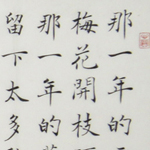 那一年的
梅花開枝
那一年的
留下太多